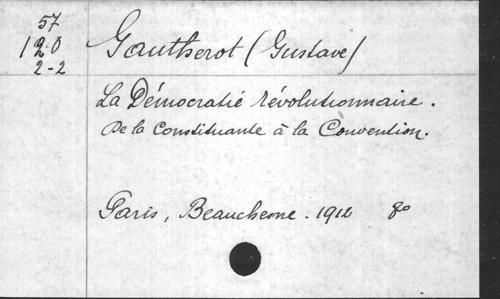 57
120
2-2
Gautherot (Gustave)
La Démocratie révolutionnaire.
De la Constituante à la Convention.
Paris, Beauchesne. 1912 8o